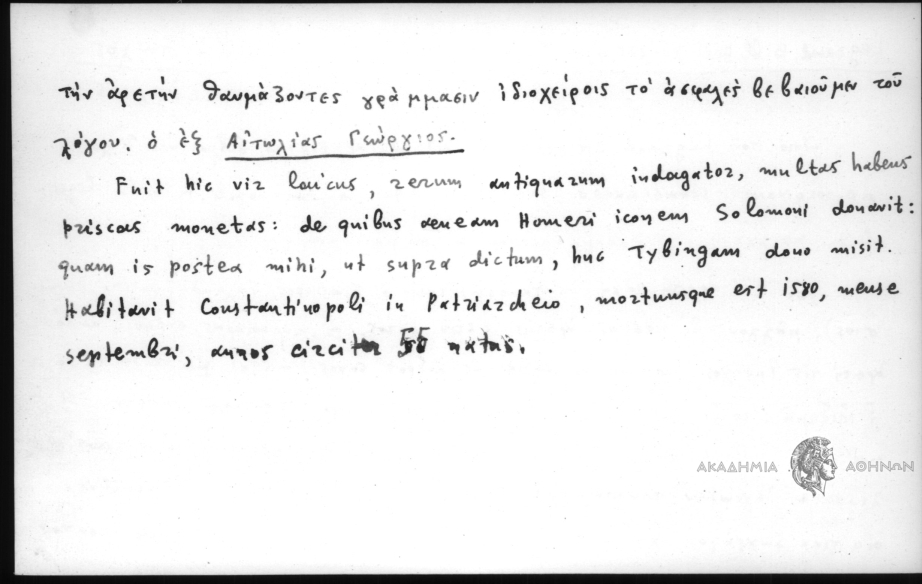 τὴν ἀρετὴν θαυμάζοντες γράμμασιν ἰδιοχείροις τὸ ἀσφαλὲς βεβαιοῦμεν τοῦ
λόγου. ὁ ἐξ Αἰτωλίας Γεώργιος.
Fuit hic vir laicus, rerum antiquarum indagator, multas habens
priscas monetas: de quibus aeneam Homeri iconem Solomoni donavit:
quam is postea mihi, ut supra dictum, huc Tybingam dono misit.
Habitavit Constantinopoli in Patriarcheio, mortuusque est 1580, mense
septembri, annos circiter 55 natus.
ΑΚΑΔΗΜΙΑ ΑΘΗΝΩΝ